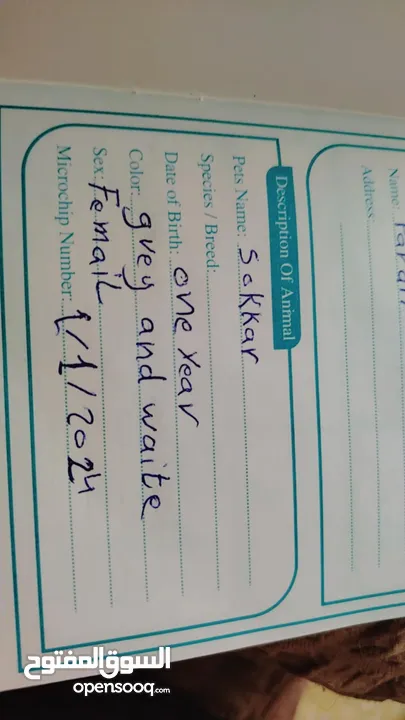 Name:
Address:
Description Of Animal
Pets Name: Sokkar
Species / Breed:
Date of Birth: one year
Color: grey and waite
Sex: FemaiL
Microchip Number: 1/1/2024
السوق المفتوح
opensooq.com